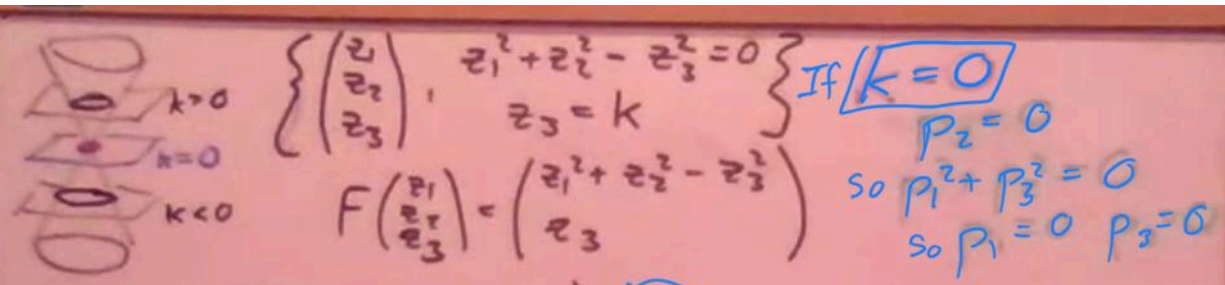 k>0
k=0
k<0
{(z₁ z₂ z₃), z₁² + z₂² - z₃² = 0
z₃ = k}
F(z₁ z₂ z₃) = (z₁² + z₂² - z₃²
z₃)
If k = 0
p₂ = 0
so p₁² + p₃² = 0
so p₁ = 0 p₃ = 0